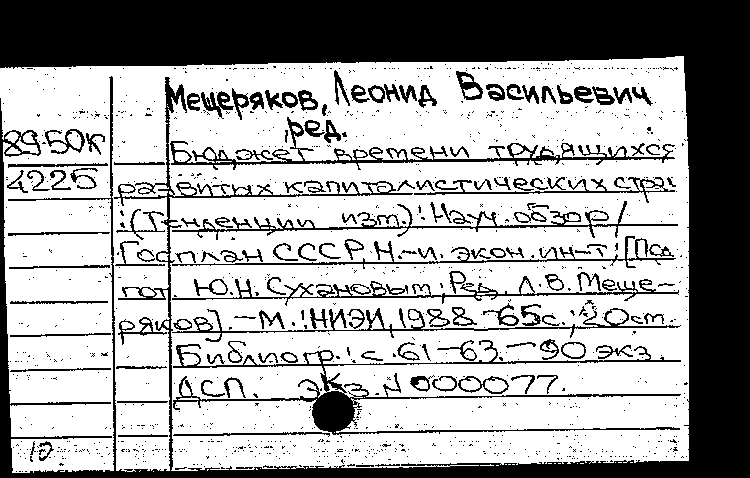 Мещеряков, Леонид Васильевич
ред.
89-50К
Бюджет времени трудящихся
4225
развитых капиталистических стран
:(Тенденции изм.):Науч. обзор/
Госплан СССР, Н.-и. экон. ин-т; [Под
гот. Ю.Н. Сухановым; Ред. Л.В. Меще-
ряков].-М.:НИЭИ, 1988.-65с.; 20см.
Библиогр.: с. 61-63.-90 экз.
ДСП. Экз. N 000077.
10